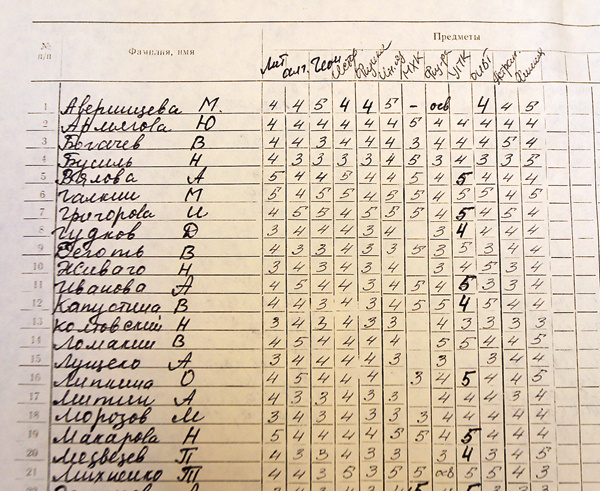 № п/п Фамилия, имя Предметы
Лит алг. Геом Физика Ин.яз МХК Физ-ра УПК ОБЖ Химия
1 Аверинцева М. 4 4 5 4 4 5 - осв 4 4 5
2 Ю 4 4 4 4 4 5 4 5 4 4 4 4
3 Богачев В 4 4 3 4 4 4 3 4 4 4 5 4
4 Бусиль Н 4 3 3 3 3 4 5 3 4 3 3 5
5 Вялова А 5 4 4 5 4 4 5 4 5 4 4 4
6 Галкин М 5 4 5 5 4 5 5 4 5 5 4 5
7 Григорова И 4 5 5 4 5 5 5 4 5 4 5 4
8 Гудков Д 3 4 4 4 3 4 3 4 4 4 4
9 Деготь В 4 3 3 4 3 3 5 3 5 3 4 4
10 Живаго Н 3 4 3 4 3 4 3 4 5 3 4
11 Иванова А 4 5 4 4 3 4 5 4 5 3 3 4
12 Капустина В 4 4 3 4 3 4 5 5 4 5 4 4
13 Колтовский Н 3 4 3 3 3 4 3 3 3 3
14 Ломакин В 4 5 4 4 4 4 5 5 4 4 5
15 Лущеко А 3 4 4 4 4 3 3 3 4 4
16 Липкина О 4 5 4 4 4 3 4 5 4 4 5
17 Митин А 4 3 3 4 3 3 4 4 4 3 4
18 Морозов М 3 4 3 4 3 3 3 4 4 4 4 4
19 Макарова Н 5 4 4 4 4 5 5 4 5 4 4 4
20 Медведев П 4 3 3 4 3 4 3 4 3 4 5
21 Михиенко Т 4 4 3 5 3 5 5 осв 5 5 4 3